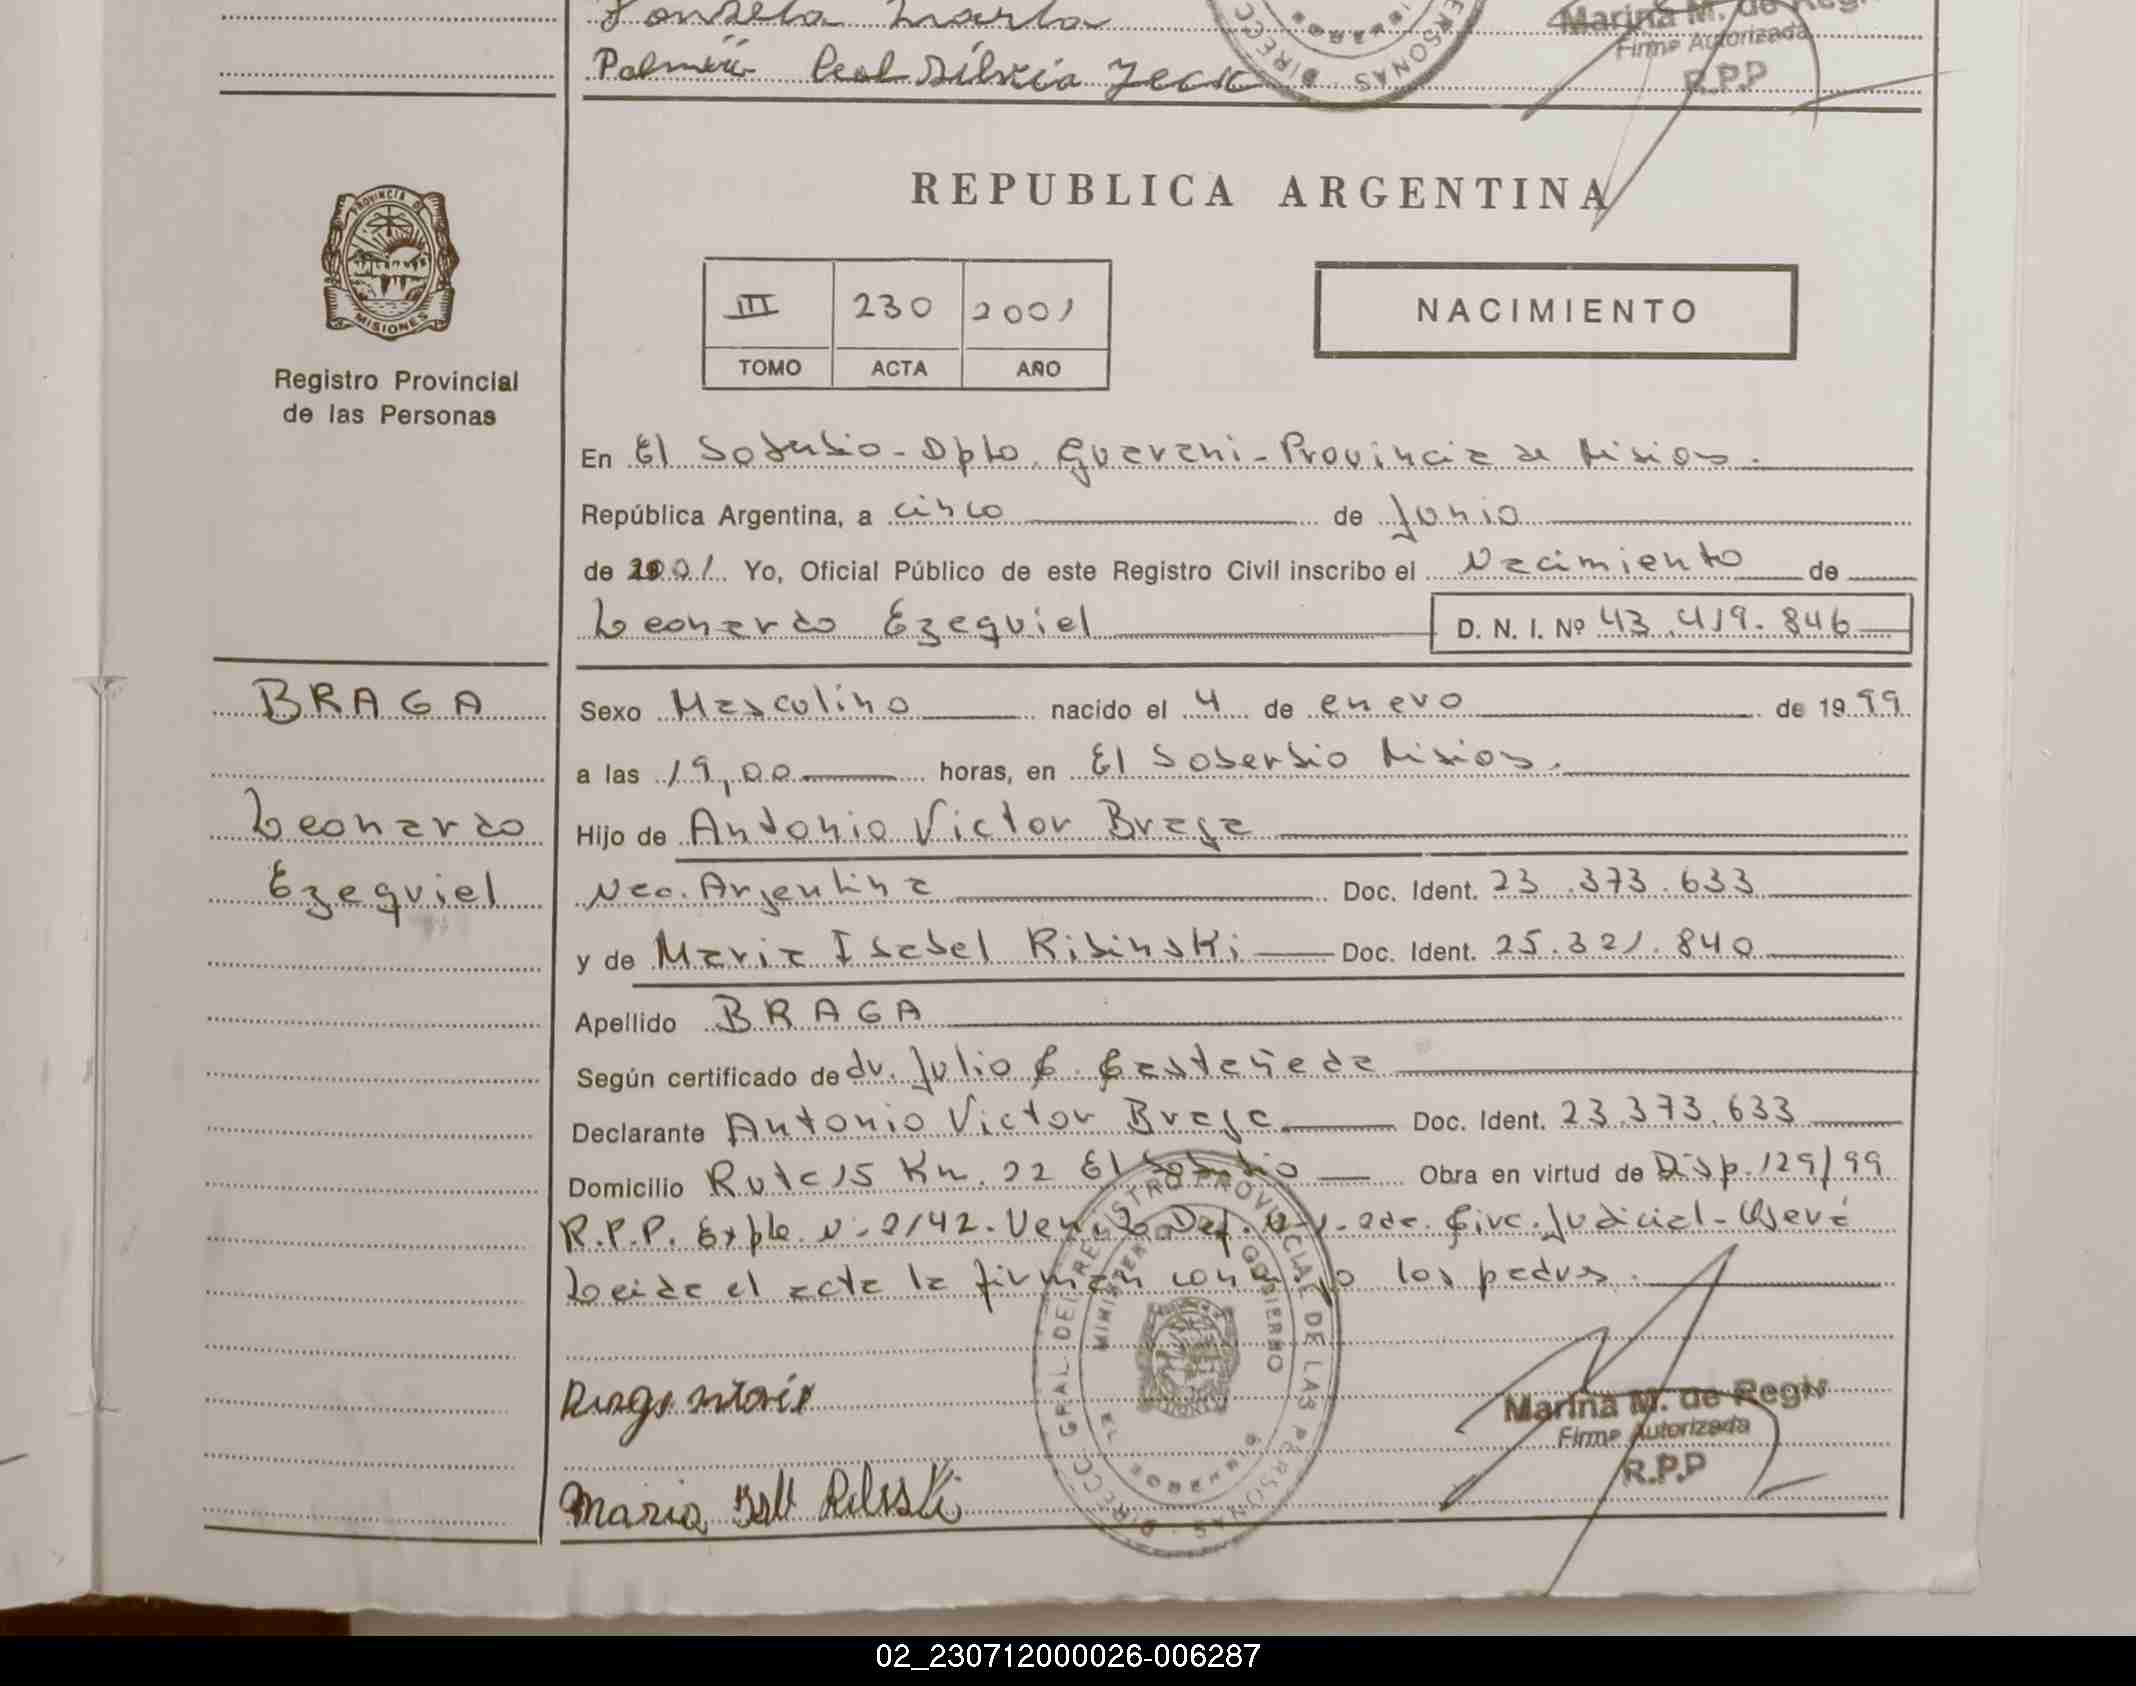 Palmira Leal Silvia
Marina M. de Regis
Firma Autorizada
R.P.P
PROVINCIA DE
MISIONES
Registro Provincial
de las Personas
REPUBLICA ARGENTINA
III 230 2001
TOMO ACTA AÑO
NACIMIENTO
En El Soberbio - Dpto. Guarani - Provincia de Misiones.
República Argentina, a cinco de Junio
de 2001 Yo, Oficial Público de este Registro Civil inscribo el Nacimiento de
Leonardo Ezequiel D. N. I. Nº 43.419.846
BRAGA
Leonardo
Ezequiel
Sexo Masculino nacido el 4 de enero de 1999
a las 19,00 horas, en El Soberbio Misiones.
Hijo de Antonio Victor Braga
Nac. Argentina Doc. Ident. 23.373.633
y de Maria Isabel Ribinski Doc. Ident. 25.321.840
Apellido BRAGA
Según certificado de dr. Julio C. Castañeda
Declarante Antonio Victor Braga Doc. Ident. 23.373.633
Domicilio Ruta 15 Km. 22 El Soberbio Obra en virtud de Disp. 129/99
R.P.P. Expte. Nº 2142. Def. Nº 1. 2da. Circ. Judicial - Oberá
Leida el acta la firman conmigo los padres.
DIRECC. GRAL. DEL REGISTRO PROVINCIAL DE LAS PERSONAS
MINISTERIO DE GOBIERNO
EL SOBERBIO
Maria Ribinski
Marina M. de Regis
Firma Autorizada
R.P.P
02_230712000026-006287